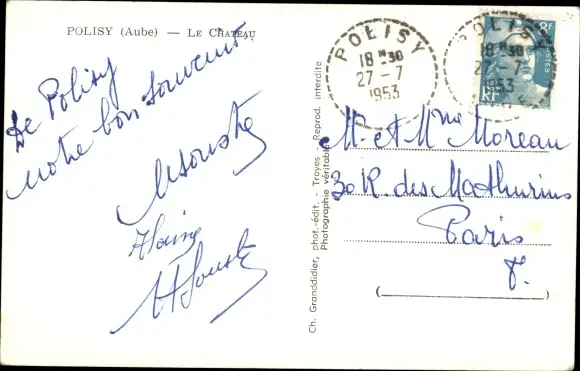 POLISY (Aube) — LE CHATEAU
De Polisy
notre bon souvenir
Ch. Granddidier, phot.-édit. - Troyes Reprod. interdite
Photographie véritable
POLISY
18 H 30
27 - 7
1953
POLISY
18 H 30
27 - 7
1953
8F
POSTES
RF
Mr et Mme Moreau
30 R. des Mathurins
Paris